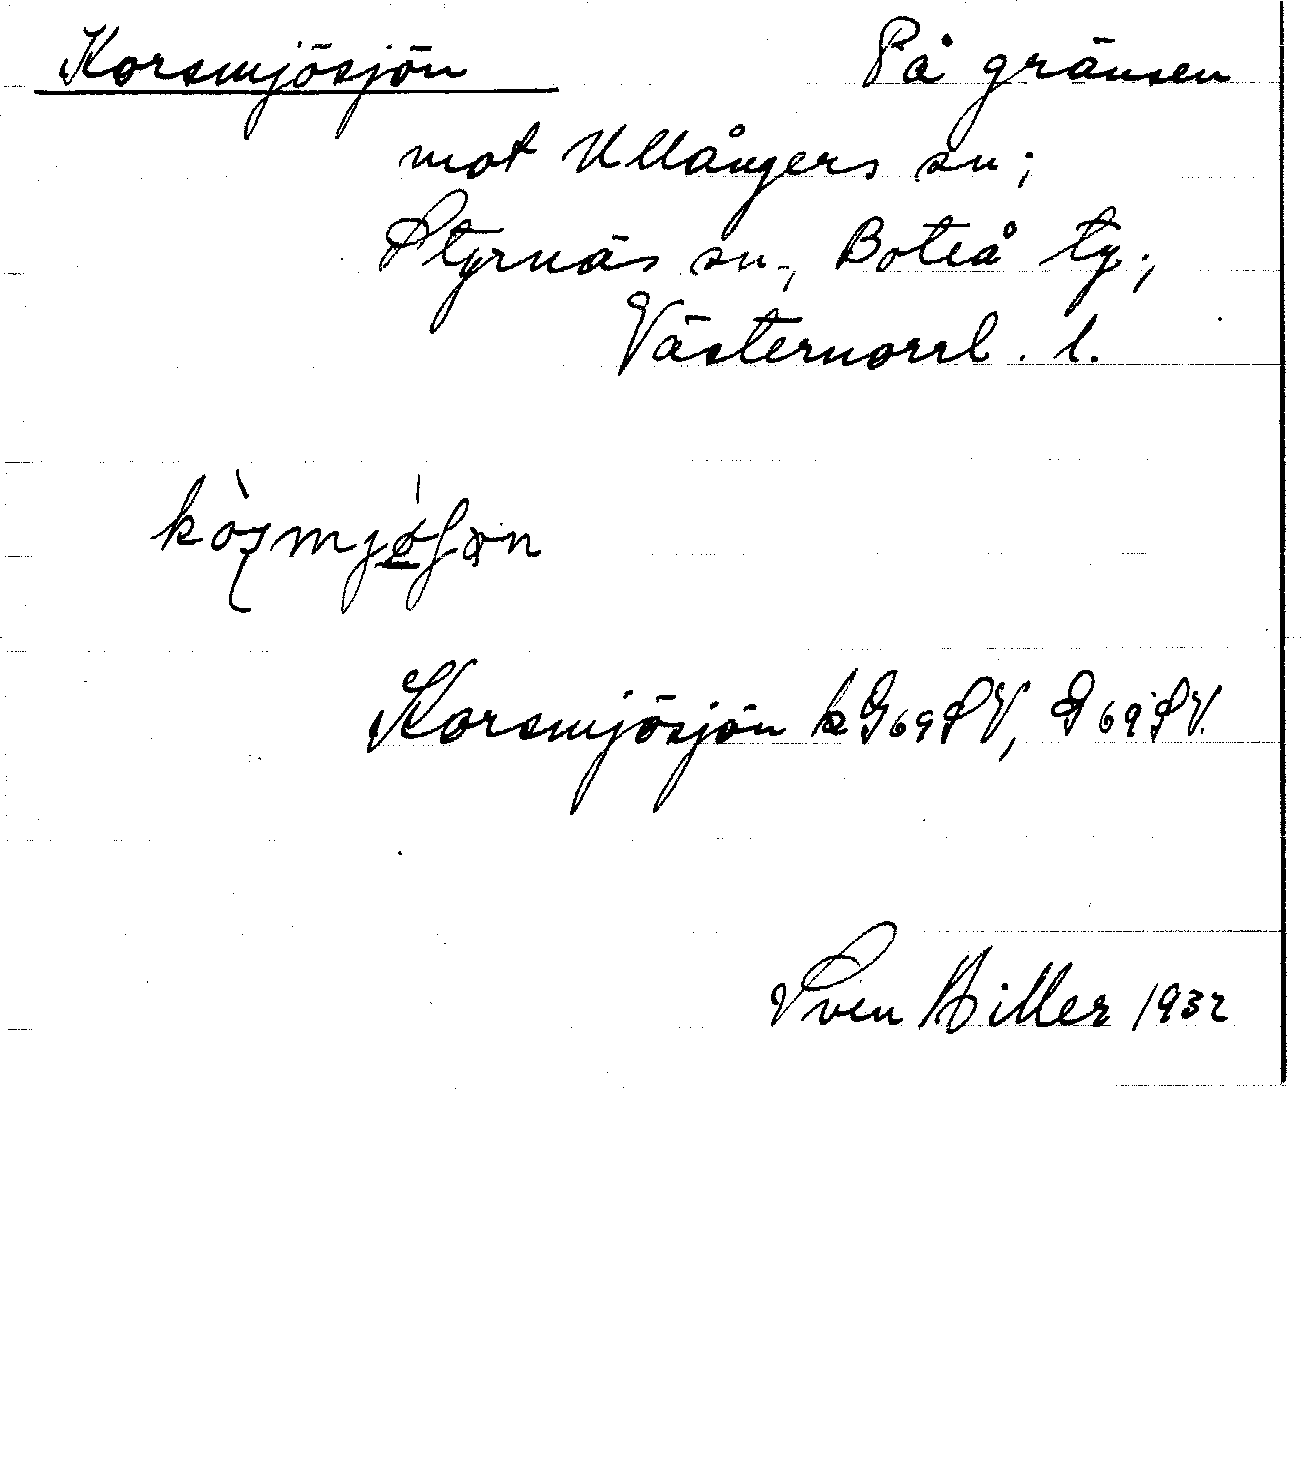 Korsmjösjön På gränsen
mot Ullångers sn;
Styrnäs sn., Boteå tg.,
Västernorrl. l.
Korsmjösjön k G69SV, G69SV.
Sven Hiller 1932